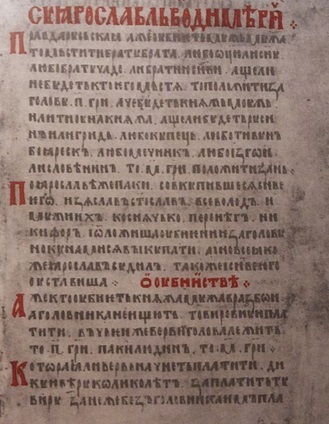 СꙊ ꙖРОСЛАВЛЬ ВОЛОДИМѢРИ
Правда роуськаꙗ. аже оубиеть моужь моужа
то мьстити брату брата. любо ѿцю. ли сыну
любо братучадо. ли братню сынови. аще ли
не будеть кто его мьстѧ. то положити за
голову. п. грн. аче будеть кнѧжь моужь
или тиоуна кнѧжа. аще ли будеть руси
нъ. или гридь. любо купець. любо тивунъ
боꙗреск. любо мечник. любо изгои.
ли словѣнин. то. м. грн. положити зань
По ꙗрославѣ же паки. совкупившесѧ снве
иго. изѧслав. стослав. всеволод. и
моужи их. коснѧчько. перенѣгъ. ни
кифор. i ѿложиша оубиение за голову
но кунами сѧ выкупати. а ино все ꙗко
же ꙗрослав судил. такоже и снве его
оуставиша. О оубииствѣ
Аже кто оубиеть кнѧжа моужа в разбои
а головника не ищють. то виревную пла
тити. въ чьеи же верви голова лежить
то п. грн. паки людин. то. м. грн.
Котораꙗ ли вервь начнеть платити. ди
кую виру. колико лѣт. заплатить ту
виру. занеже без головника им пла